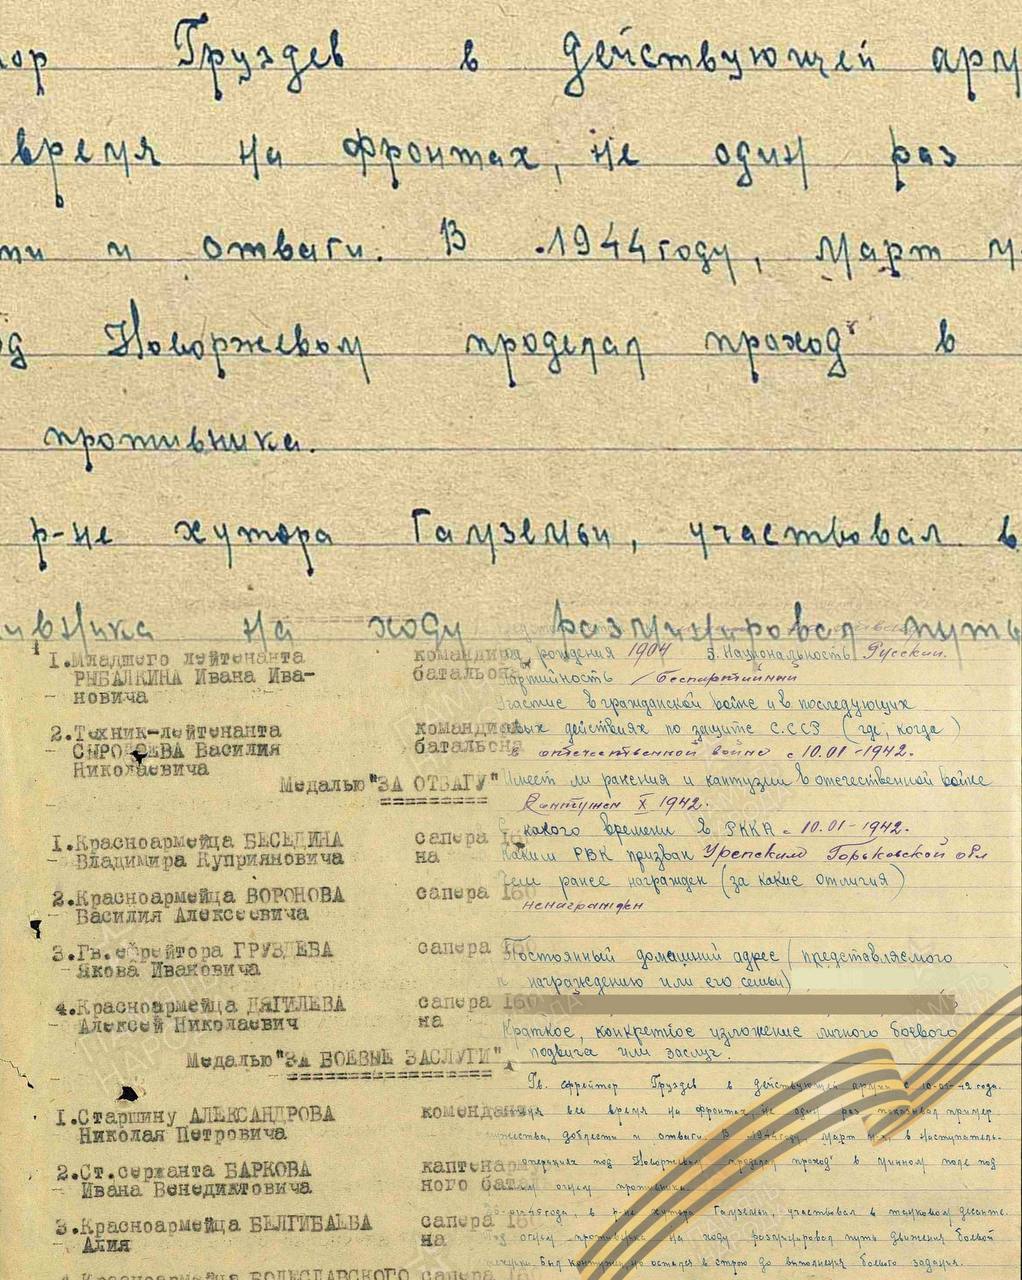 Груздев в действующей
время на фронтах, не один раз
и отваги. В 1944 году, март
Новоржевом проделал проход в
противника.
р-не хутора Гамземьи, участвовал в
на ходу разминировал путь
1. Младшего лейтенанта
РЫБАЛКИНА Ивана Ива-
новича
2. Техник-лейтенанта
Василия
Николаевича
Медалью "ЗА ОТВАГУ"
1. Красноармейца БЕСЕДИНА сапера
Владимира Куприяновича на
2. Красноармейца ВОРОНОВА сапера
Василия Алексеевича
3. Гв. ефрейтора ГРУЗДЕВА сапера
Якова Ивановича
4. Красноармейца ДЯГИЛЕВА сапера
Алексей Николаевич на
Медалью "ЗА БОЕВЫЕ ЗАСЛУГИ"
1. Старшину АЛЕКСАНДРОВА
Николая Петровича
2. Ст. сержанта БАРКОВА
Ивана Венедиктовича
3. Красноармейца БЕЛГИБАЕВА сапера
Алия на
рождения 1904 5. Национальность Русский.
Партийность Беспартийный
Участие в гражданской войне и в последующих
действиях по защите СССР (где, когда)
в отечественной войне с 10.01-1942.
Имеет ли ранения и кантузии в отечественной войне
Контужен X 1942.
С какого времени в РККА с 10.01-1942.
Каким РВК призван Уренским Горьковской обл
Чем ранее награжден (за какие отличия)
ненагражден
Постоянный домашний адрес (представляемого
к награждению или его семьи)
Краткое, конкретное изложение личного боевого
подвига или заслуг.
Гв. ефрейтор Груздев в действующей армии с 10-01-42 года.
все время на фронтах, не один раз показывал пример
доблести и отваги. В 1944 году, март м-ц, в наступатель-
под Новоржевом проделал проход в минном поле под
огнем противника.
года, в р-не хутора Гамземьи, участвовал в танковом десанте.
огнем противника на ходу разминировал путь движения боевой
был контужен но остался в строю до выполнения боевого задания.